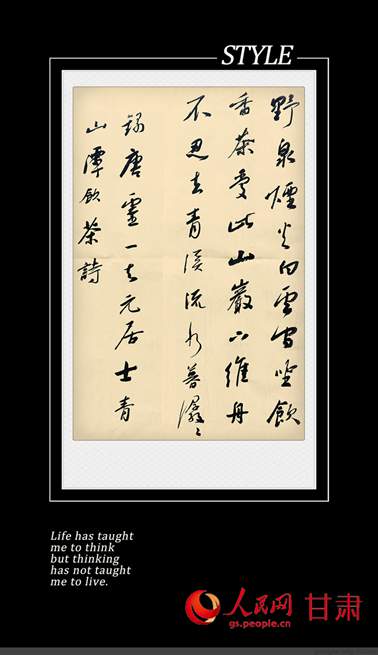 STYLE
野泉煙火白雲間坐飲
香茶愛此山巖下維舟
不忍去青溪流水暮潺々
錄唐靈一与元居士青
山潭飲茶詩
Life has taught
me to think
but thinking
has not taught
me to live.
人民网 甘肃
gs.people.cn